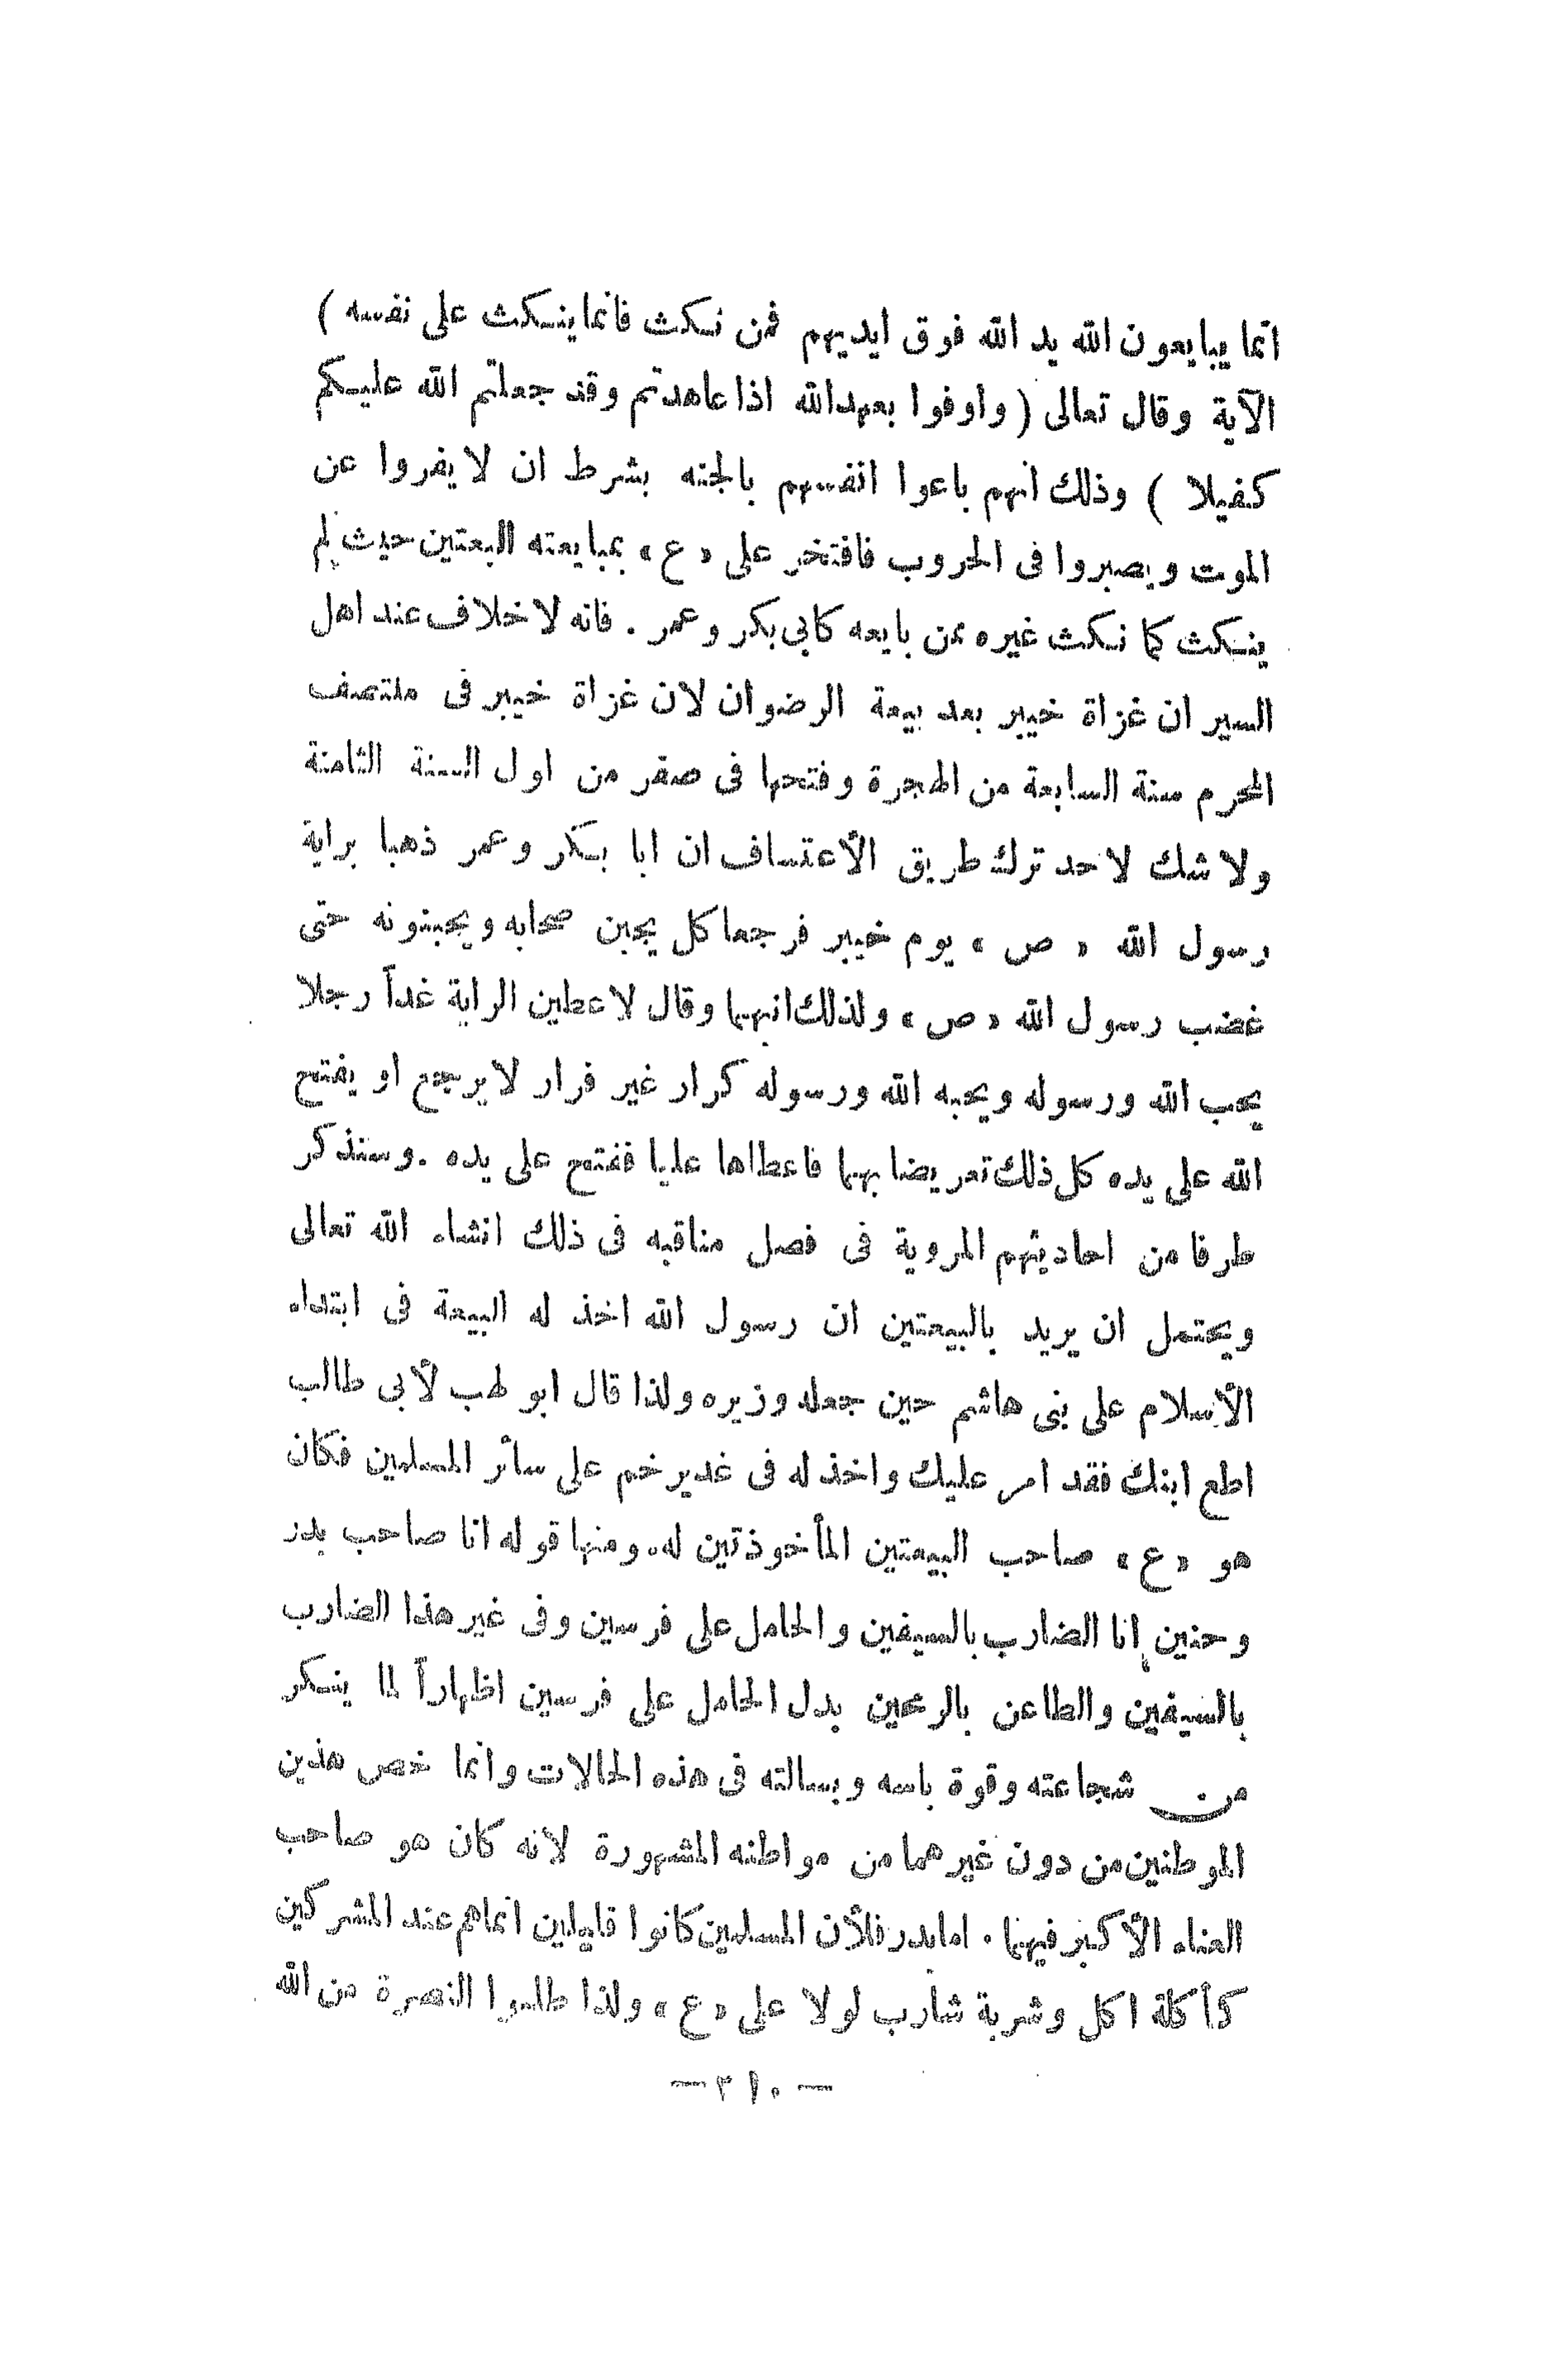 انما يبايعون الله يد الله فوق ايديهم فمن نكث فانما ينكث على نفسه )
الآية وقال تعالى ( واوفوا بعهد الله اذا عاهدتم وقد جعلتم الله عليكم
كفيلا ) وذلك انهم باعوا انفسهم بالجنه بشرط ان لا يفروا عن
الموت ويصبروا فى الحروب فافتخر على « ع » بمبايعته البعتين حيث لم
ينكث كما نكث غيره ممن بايعه كابى بكر وعمر . فانه لا خلاف عند اهل
السير ان غزاة خيبر بعد بيعة الرضوان لان غزاة خيبر فى منتصف
المحرم سنة السابعة من الهجرة وفتحها فى صفر من اول السنة الثامنة
ولا شك لاحد ترك طريق الأعتساف ان ابا بكر وعمر ذهبا براية
رسول الله « ص » يوم خيبر فرجعا كل يجبن صحابه ويجبنونه حتى
غضب رسول الله « ص » ولذلك انهما وقال لاعطين الراية غداً رجلا
يحب الله ورسوله ويحبه الله ورسوله كرار غير فرار لا يرجع او يفتح
الله على يده كل ذلك تعريضا بهما فاعطاها عليا ففتح على يده . وسنذكر
طرفا من احاديثهم المروية فى فصل مناقبه فى ذلك انشاء الله تعالى
ويحتمل ان يريد بالبيعتين ان رسول الله اخذ له البيعة فى ابتداء
الأسلام على بنى هاشم حين جعله وزيره ولذا قال ابو لهب لأبى طالب
اطع ابنك فقد امر عليك واخذ له فى غدير خم على سأر المسلمين فكان
هو « ع » صاحب البيعتين المأخوذتين له. ومنها قوله انا صاحب بدر
وحنين انا الضارب بالسيفين والحامل على فرسين وفى غير هذا الضارب
بالسيفين والطاعن بالرمحين بدل الحامل على فرسين اظهاراً لما ينكر
من شجاعته وقوة باسه وبسالته فى هذه الحالات وانما خص هذين
الموطنين من دون غيرهما من مواطنه المشهورة لانه كان هو صاحب
العناء الأكبر فيهما . اما بدر فلأن المسلمين كانوا قليلين انما هم عند المشركين
كأكلة اكل وشربة شارب لولا على « ع » ولذا طلبوا النصرة من الله
— ٣١٠ —